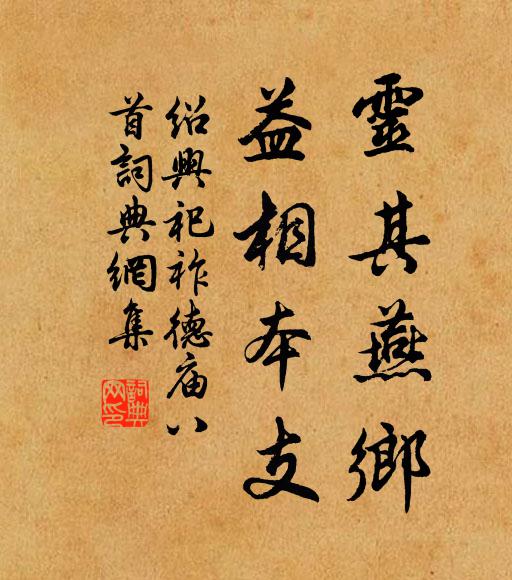 靈其燕鄉
益相本支
紹興祀祚德廟八
首詞典網集
詞典網印